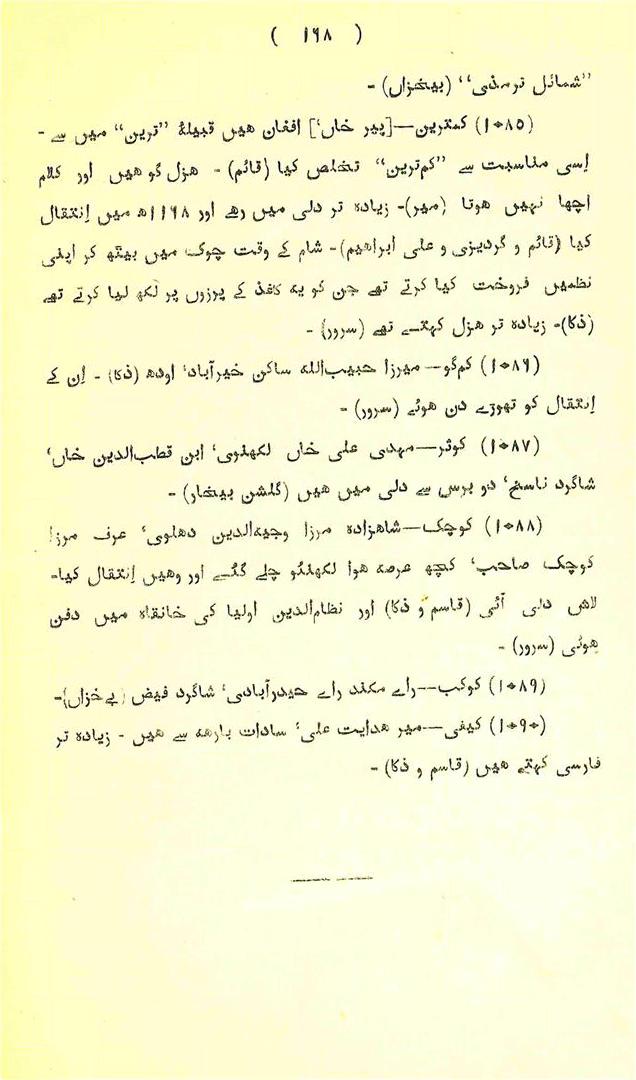 ( ۱۹۸ )
”شمائل ترمذی“ (بیخزاں) -
(۱۰۸۵) کمترین—[پیر خاں‘] افغان ھیں قبیلۂ ”ترین“ میں سے -
اِسی مناسبت سے ”کم‌ترین“ تخلص کیا (قائم) - ھزل گو ھیں اور کلام
اچھا نہیں ھوتا (میر)- زیادہ تر دلی میں رھے اور ۱۱۶۸ھ میں اِنتقال
کیا (قائم و گردیزی و علی ابراھیم)- شام کے وقت چوک میں بیٹھ کر اپنی
نظمیں فروخت کیا کرتے تھے جن کو یہ کاغذ کے پرزوں پر لکھ لیا کرتے تھے
(ذکا)- زیادہ تر ھزل کہتے تھے (سرور) -
(۱۰۸۶) کم‌گو—میرزا حبیب‌اللہ ساکن خیرآباد‘ اودھ (ذکا) - اِن کے
اِنتقال کو تھوڑے دن ھوئے (سرور) -
(۱۰۸۷) کوثر—مہدی علی خاں لکھنوی‘ ابن قطب‌الدین خاں‘
شاگرد ناسخ‘ دو برس سے دلی میں ھیں (گلشن بیخار) -
(۱۰۸۸) کوچک—شاھزادہ مرزا وجیہ‌الدین دھلوی‘ عرف مرزا
کوچک صاحب‘ کچھ عرصہ ھوا لکھنئو چلے گئے اور وھیں اِنتقال کیا-
لاش دلی آئی (قاسم و ذکا) اور نظام‌الدین اولیا کی خانقاہ میں دفن
ھوئی (سرور) -
(۱۰۸۹) کوکب—راے مکند راے حیدرآبادی‘ شاگرد فیض (بےخزاں)-
(۱۰۹۰) کیفی—میر ھدایت علی‘ سادات بارھہ سے ھیں - زیادہ تر
فارسی کہتے ھیں (قاسم و ذکا) -